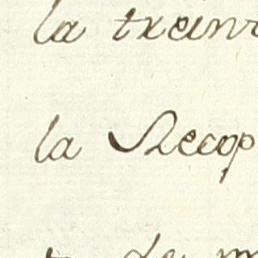 la trein
la Recop